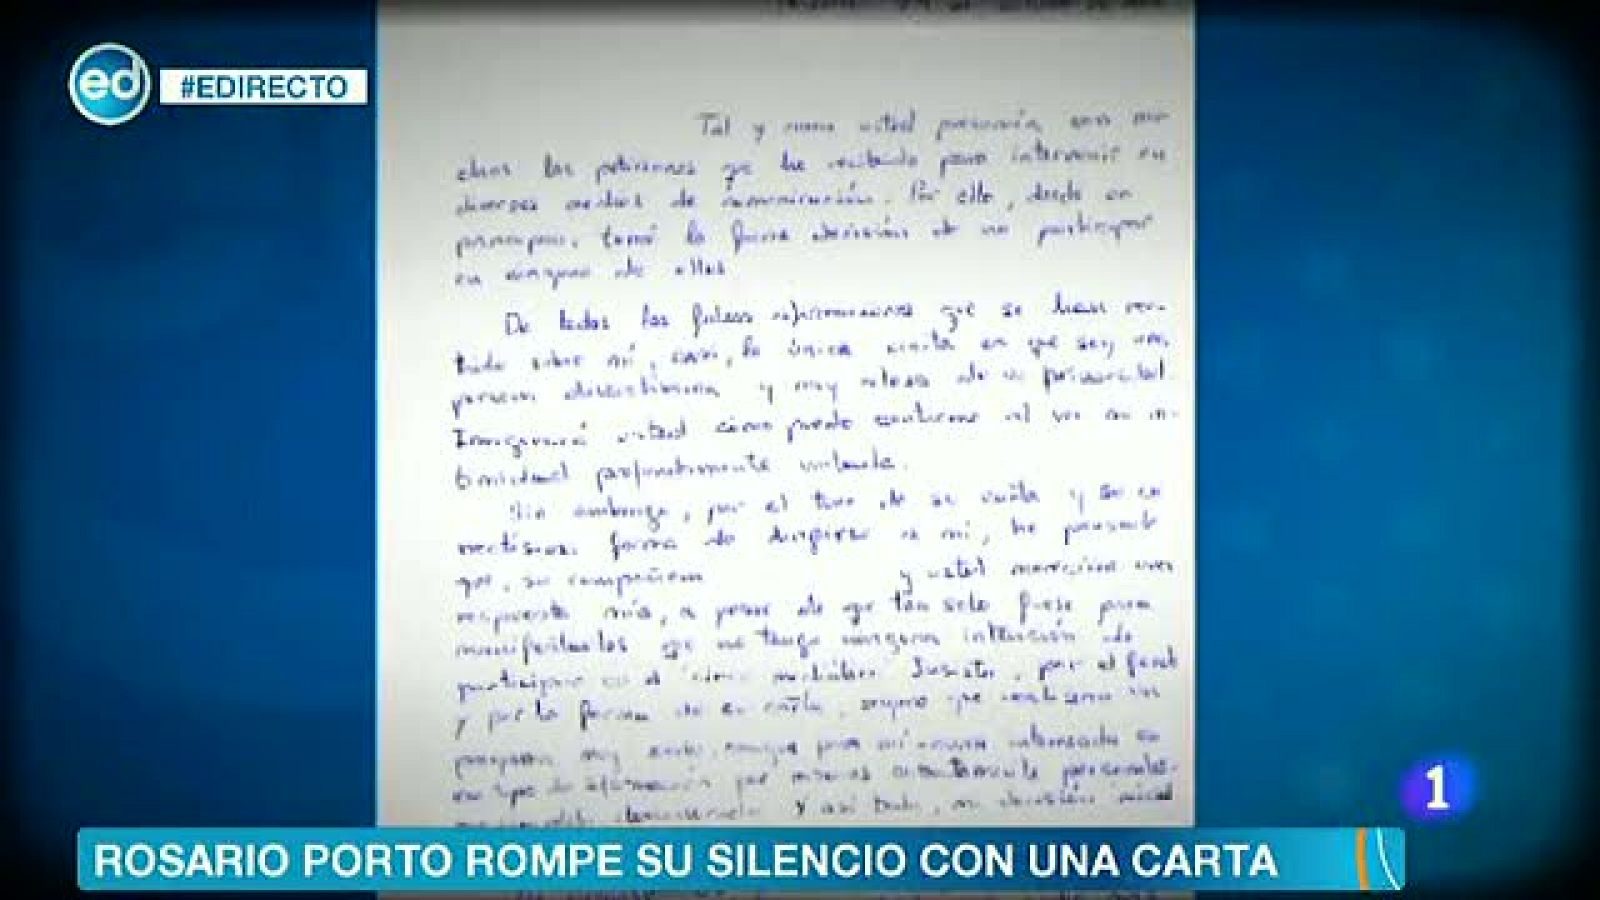 ed
#EDIRECTO
Tal y como usted presumía, son mu-
chas las peticiones qe he recibido para intervenir en
diversos medios de comunicación. Por ello, desde un
principio, tomé la firme decisión de no participar
en ninguno de ellos
De todas las falsas informaciones que se han ver-
tido sobre mí, casi, la única cierta es que soy una
persona discretísima y muy celosa de mi privacidad.
Imaginará usted cómo puedo sentirme al ver mi in-
timidad profundamente violada.
Sin embargo, por el tono de su carta y su co
rrectísima forma de dirigirse a mí, he pensado
que, su compañera y usted merecían una
respuesta mía, a pesar de qe tan solo fuese para
manifestarles qe no tengo ninguna intención de
participar en el "circo mediático". Insisto, por el fondo
y por la forma de su carta, supongo que realizarán un
programa muy serio, aunque para mí
tipo de información por
Y así todo, mi decisión inicial
1
ROSARIO PORTO ROMPE SU SILENCIO CON UNA CARTA